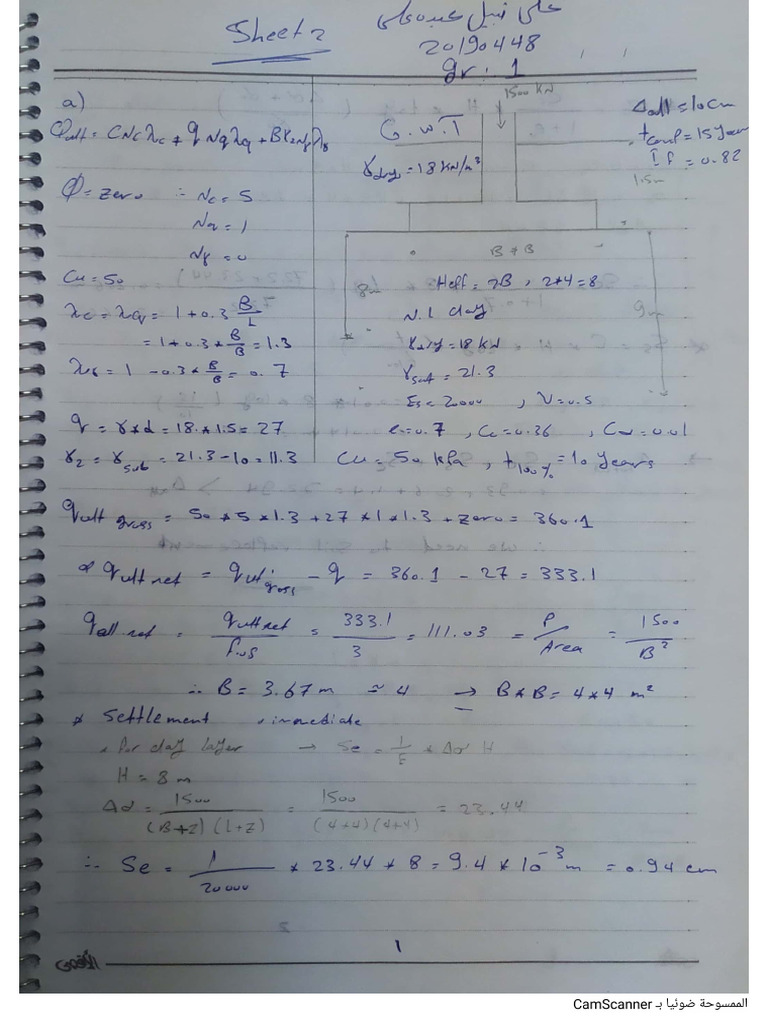 Sheet 2
على نبيل عبده على
20190448
gr: 1
a)
qult = C Nc λc + q Nq λq + B γ2 Nγ λγ
Φ = zero ∴ Nc = 5
Nq = 1
Nγ = 0
Cu = 50
λc = λq = 1 + 0.3 B/L
= 1 + 0.3 * B/B = 1.3
λγ = 1 - 0.3 * B/B = 0.7
q = γ * d = 18 * 1.5 = 27
γ2 = γsub = 21.3 - 10 = 11.3
1500 KN
G.W.T
γdry = 18 KN/m³
Δall = 10 cm
tconst = 15 year
If = 0.82
1.5m
B * B
8m
Heff = 2B , 2*4 = 8
9m
N.L clay
γdry = 18 KN
γsat = 21.3
Es = 20000 , ν = 0.5
e. = 0.7 , Cc = 0.36 , Cα = 0.01
Cu = 50 kPa , t100% = 10 years
qult gross = 50 * 5 * 1.3 + 27 * 1 * 1.3 + zero = 360.1
qult net = qult gross - q = 360.1 - 27 = 333.1
qall net = qult net / F.o.s = 333.1 / 3 = 111.03 = P / Area = 1500 / B²
∴ B = 3.67 m ≈ 4 → B * B = 4 * 4 m²
* Settlement immediate
for clay layer → Se = 1/E * Δσ H
H = 8 m
Δσ = 1500 / (B+Z)(L+Z) = 1500 / (4+4)(4+4) = 23.44
∴ Se = 1 / 20000 * 23.44 * 8 = 9.4 * 10⁻³ m = 0.94 cm
1
الممسوحة ضوئيا بـ CamScanner